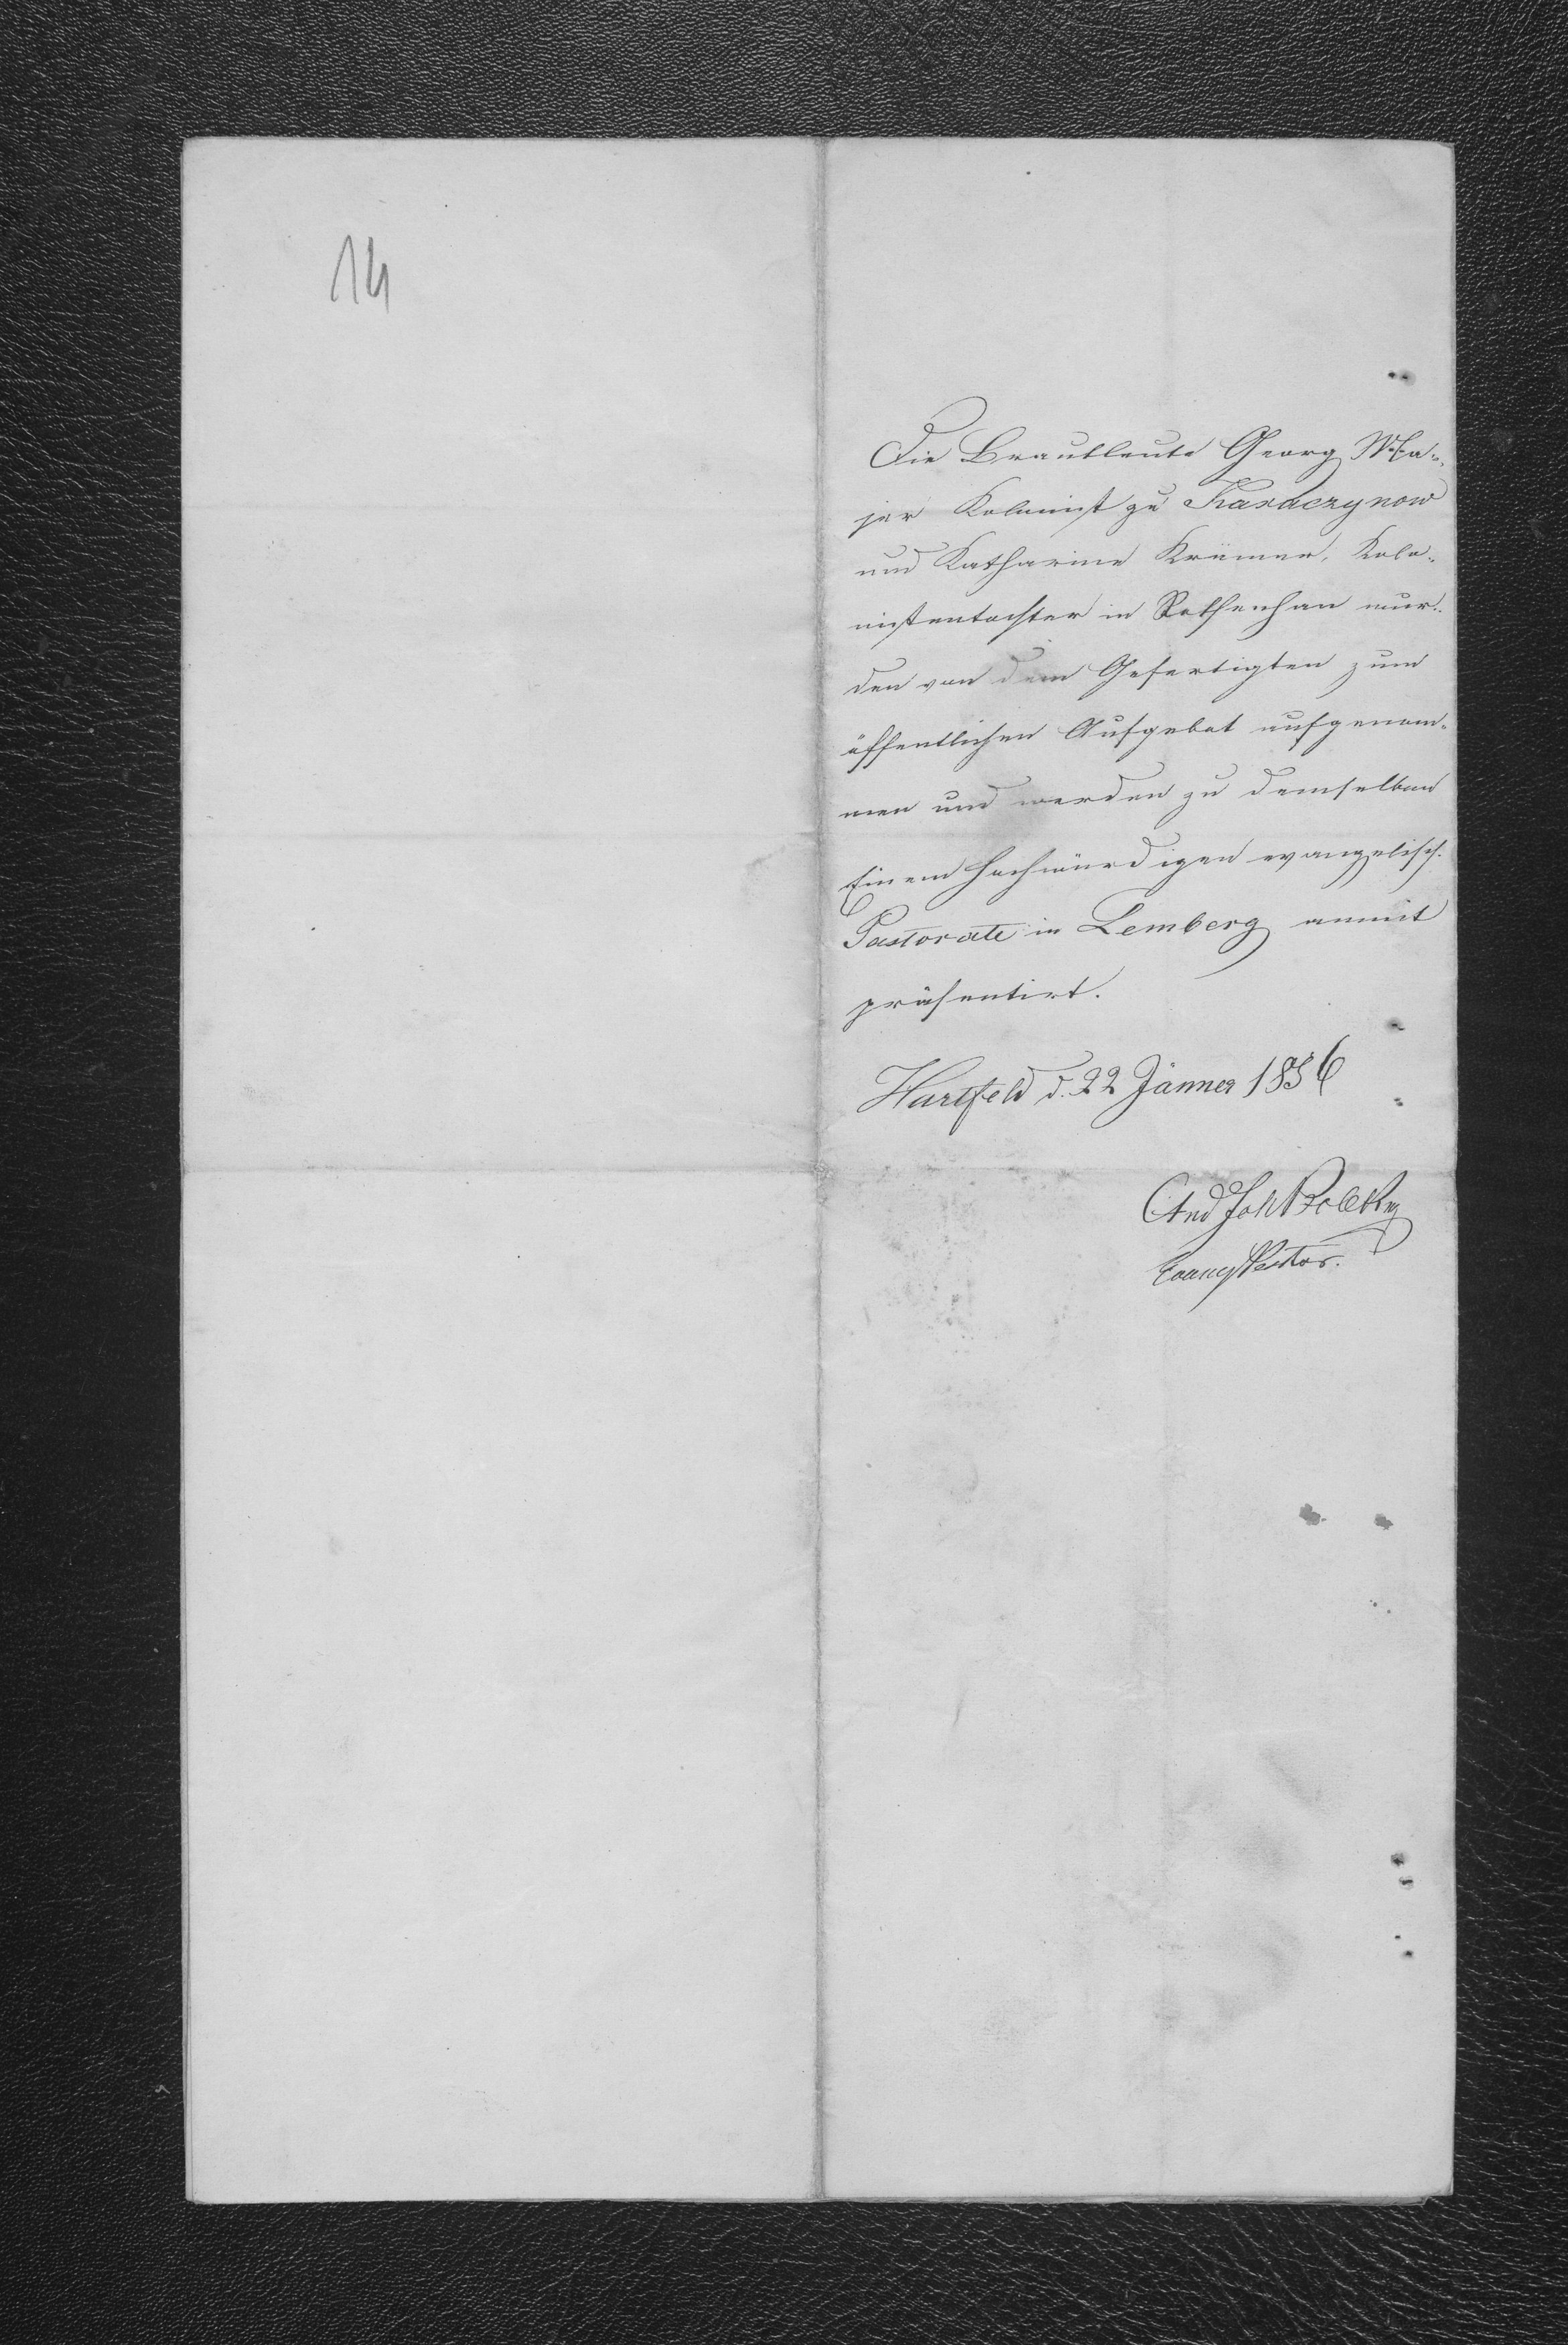 14
Die Brautleute Georg Ma-
jer Kolonist zu Karaczynow
und Katharine Krämer, Kolo-
nistentochter in Rothenhan wur-
den von dem Gefertigten zum
öffentlichen Aufgebot aufgenom-
men und werden zu demselben
Einem hochwürdigen evangelisch.
Pastorate in Lemberg anmit
präsentirt.
Hartfeld d. 22 Jänner 1856
And Joh
Evang Pastor.